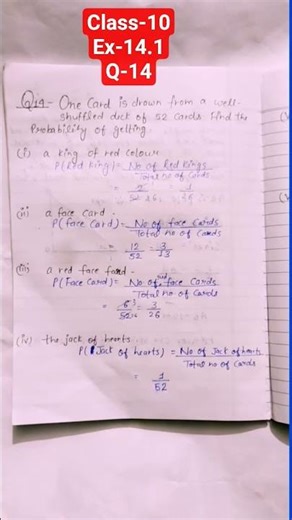 Class-10
Ex-14.1
Q-14
Q14- One Card is drown from a well-
shuffled deck of 52 cards find the
Probability of gelting.
(i) a king of red colour
P(Red King)= No of Red Kings / Total no of Cards
= 2/52 26 = 1/26
(ii) a face card -
P(face Card)= No of face Cards / Total no of Cards
= 12/52 = 3/13
(iii) a red face fard -
P(face Card)= No of red face Cards / Total no of Cards
= 6 3/52 26 = 3/26
(iv) the jack of hearts
P(Jack of hearts) = No of Jack of hearts / Total no of Cards
= 1/52